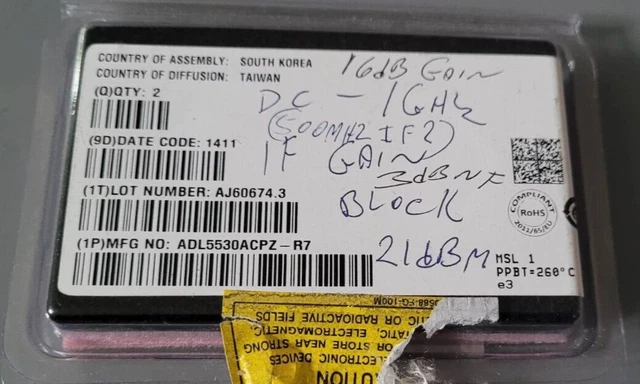 COUNTRY OF ASSEMBLY: SOUTH KOREA
COUNTRY OF DIFFUSION: TAIWAN
(Q)QTY: 2
(9D)DATE CODE: 1411
(1T)LOT NUMBER: AJ60674.3
(1P)MFG NO: ADL5530ACPZ-R7
16dB GAIN
DC - 1GHz
(500MHZ IF?)
IF GAIN
3dB NF
BLOCK
21dBM
COMPLIANT
RoHS
2011/65/EU
MSL 1
PPBT=260°C
e3
TIC OR RADIOACTIVE FIELDS
ATIC, ELECTROMAGNETIC,
OR STORE NEAR STRONG
ELECTRONIC DEVICES